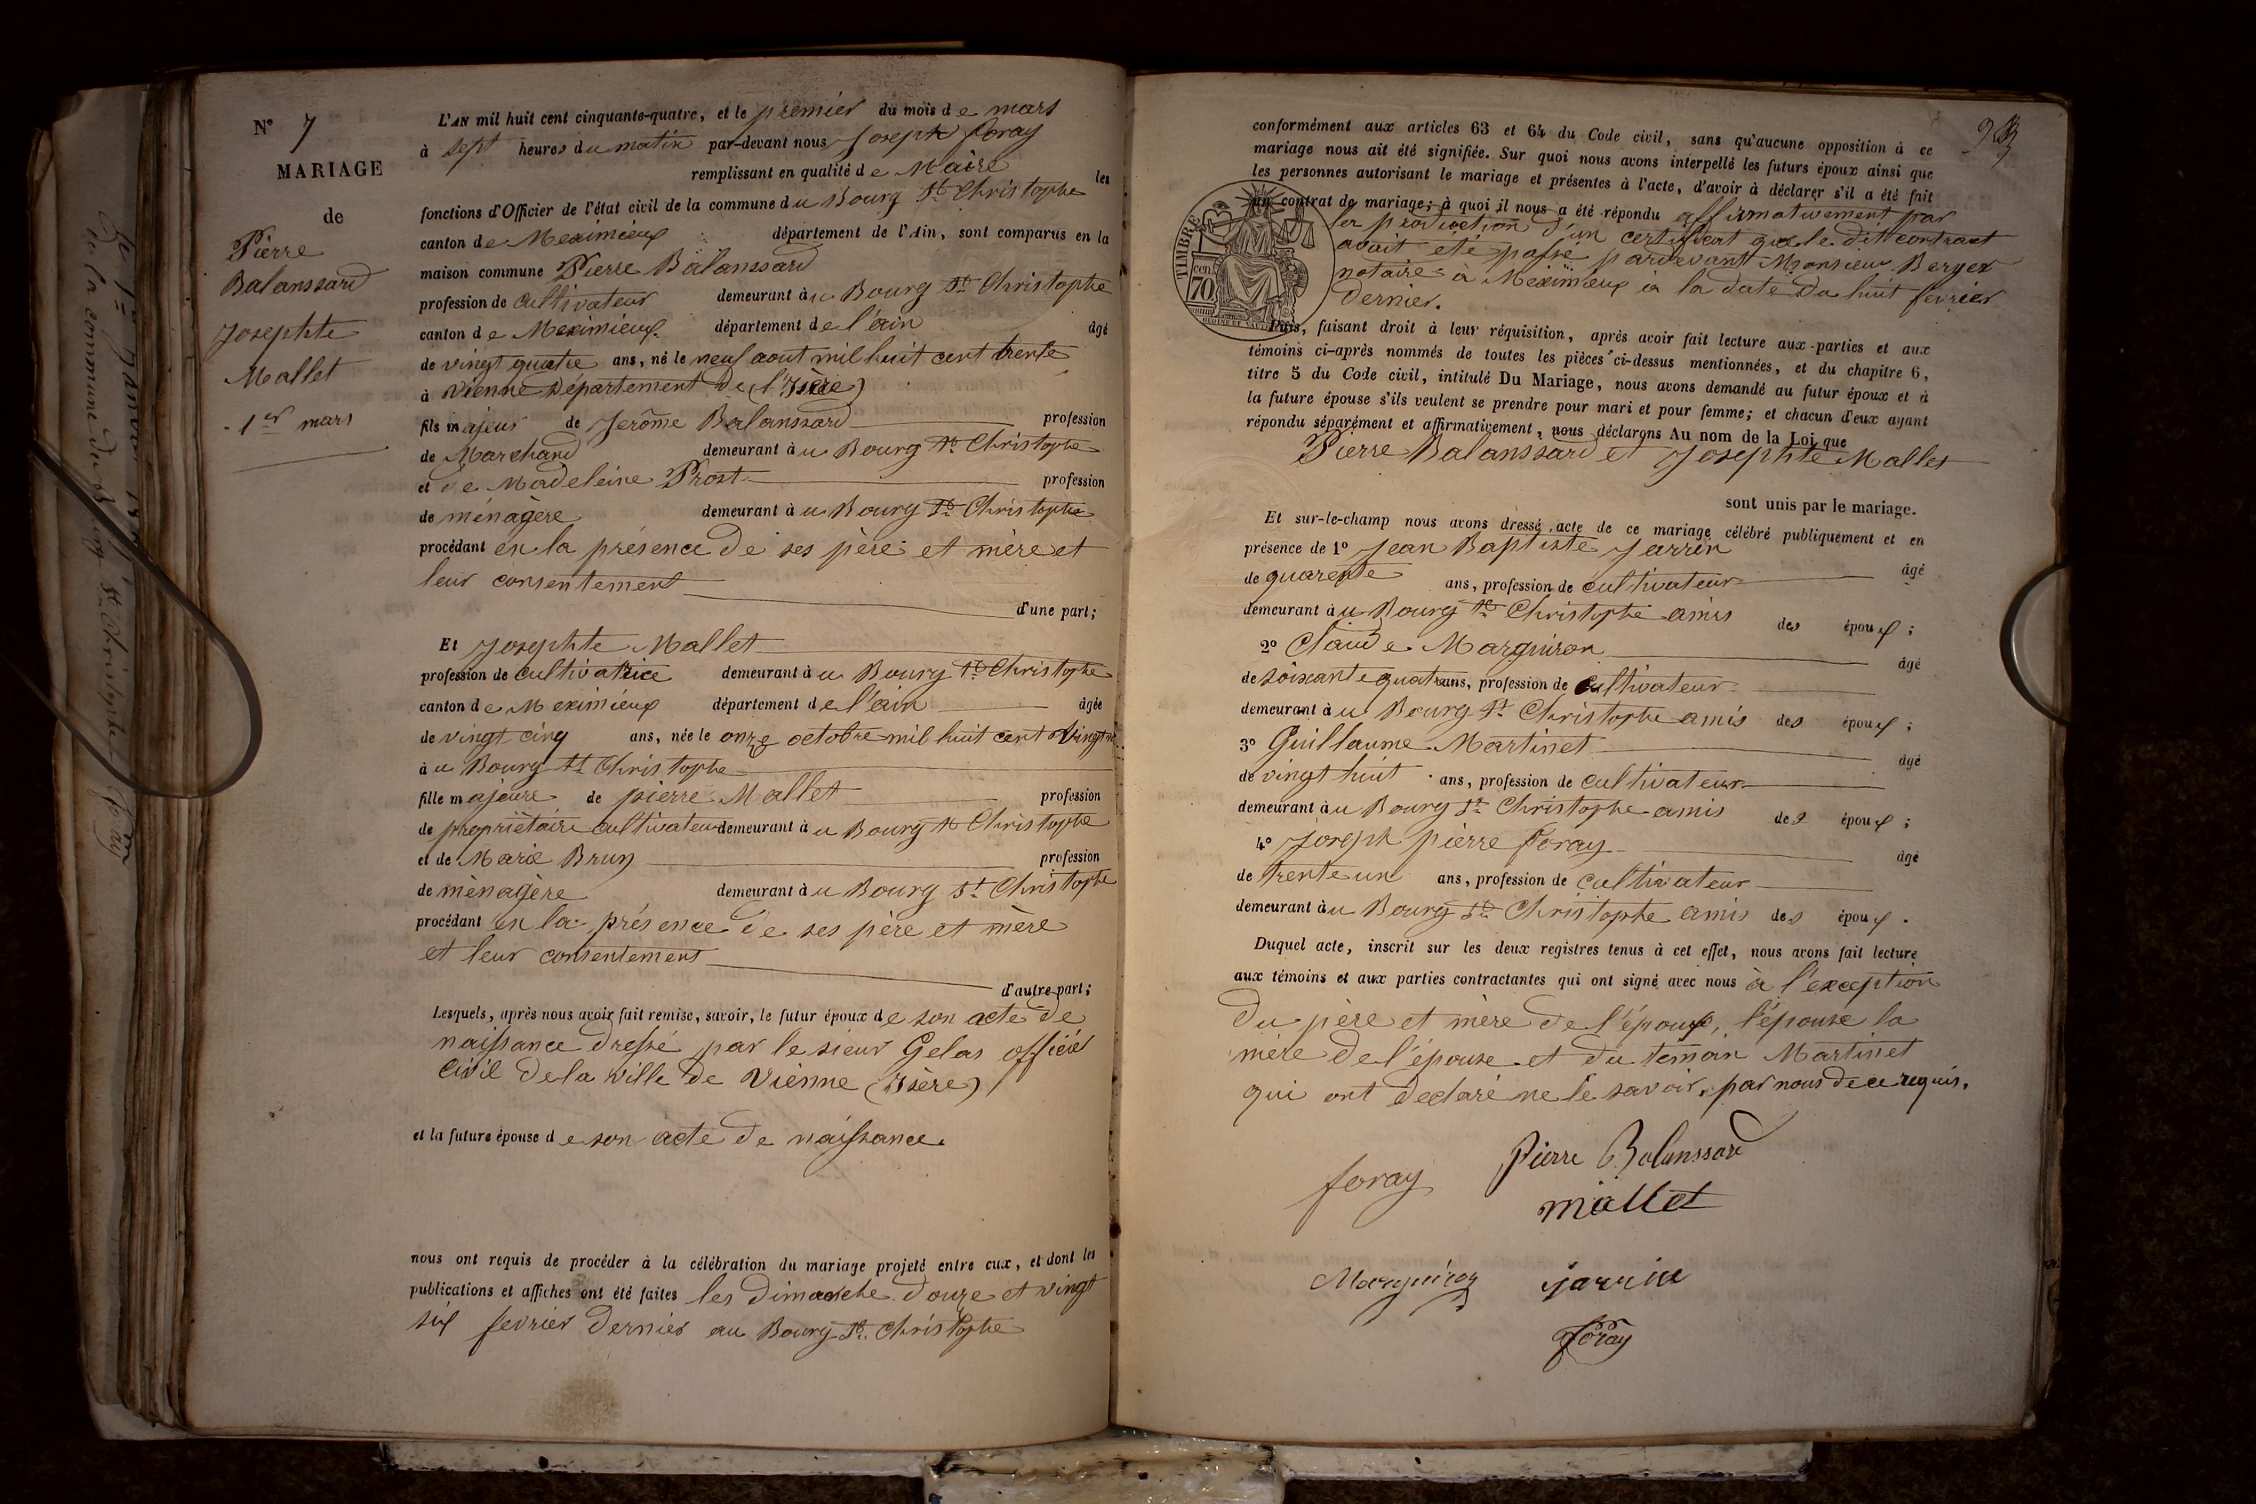 N° 7
MARIAGE
de
Pierre
Balanssard
Josephte
Mallet
1er mars
L'AN mil huit cent cinquante-quatre, et le premier du mois de mars
à sept heures du matin par-devant nous Joseph foray
remplissant en qualité de Maire les
fonctions d'Officier de l'état civil de la commune du Bourg St Christophe
canton de Meximieux département de l'Ain, sont comparus en la
maison commune Pierre Balanssard
profession de cultivateur demeurant au Bourg St Christophe
canton de Meximieux département de l'ain âgé
de vingt quatre ans, né le neuf aout mil huit cent trente
à Vienne Département de (l'Isère)
fils majeur de Jerôme Balanssard profession
de Marchand demeurant au Bourg St Christophe
et de Madeleine Prost profession
de ménagère demeurant au Bourg St Christophe
procédant en la présence de ses père et mère et
leur consentement
d'une part;
Et Josephte Mallet
profession de cultivatrice demeurant au Bourg St Christophe
canton de Meximieux département de l'ain âgée
de vingt cinq ans, née le onze octobre mil huit cent vingt
au Bourg St Christophe
fille majeure de pierre Mallet profession
de propriètaire cultivateur demeurant au Bourg St Christophe
et de Marie Brun profession
de ménagère demeurant au Bourg St Christophe
procédant en la présence de ses père et mère
et leur consentement
d'autre part;
Lesquels, après nous avoir fait remise, savoir, le futur époux de son acte de
naissance dressé par le sieur Gelas officié
civil de la ville de Vienne (Isère)
et la future épouse de son acte de naissance.
nous ont requis de procéder à la célébration du mariage projeté entre eux, et dont les
publications et affiches ont été faites les dimanche douze et vingt
six fevrier dernier au Bourg St Christophe
conformément aux articles 63 et 64 du Code civil, sans qu'aucune opposition à ce
mariage nous ait été signifiée. Sur quoi nous avons interpellé les futurs époux ainsi que
les personnes autorisant le mariage et présentes à l'acte, d'avoir à déclarer s'il a été fait
un contrat de mariage; à quoi il nous a été répondu affirmativement par
la production d'un certificat que le dit contract
avait été passé pardevant Monsieur Berger
notaire à Meximieux à la date du huit fevrier
dernier.
TIMBRE
cen
70
Puis, faisant droit à leur réquisition, après avoir fait lecture aux parties et aux
témoins ci-après nommés de toutes les pièces ci-dessus mentionnées, et du chapitre 6,
titre 5 du Code civil, intitulé Du Mariage, nous avons demandé au futur époux et à
la future épouse s'ils veulent se prendre pour mari et pour femme; et chacun d'eux ayant
répondu séparément et affirmativement, nous déclarons Au nom de la Loi que
Pierre Balanssard et Josephte Mallet
sont unis par le mariage.
Et sur-le-champ nous avons dressé acte de ce mariage célébré publiquement et en
présence de 1° Jean Baptiste Jarrin
âgé
de quarente ans, profession de cultivateur
demeurant au Bourg St Christophe amis des époux;
2° Claude Marguiron
âgé
de soixante quatre ans, profession de cultivateur
demeurant au Bourg St Christophe amis des époux;
3° Guillaume Martinet
âgé
de vingt huit ans, profession de cultivateur
demeurant au Bourg St Christophe amis des époux;
4° Joseph pierre foray
âgé
de trente un ans, profession de cultivateur
demeurant au Bourg St Christophe amis des époux.
Duquel acte, inscrit sur les deux registres tenus à cet effet, nous avons fait lecture
aux témoins et aux parties contractantes qui ont signé avec nous à l'exception
du père et mère de l'époux, l'épouse la
mère de l'épouse et du temoin Martinet
qui ont declaré ne le savoir, par nous de ce requis.
foray
Pierre Balanssard
Mallet
Marguiron
jarrin
foray